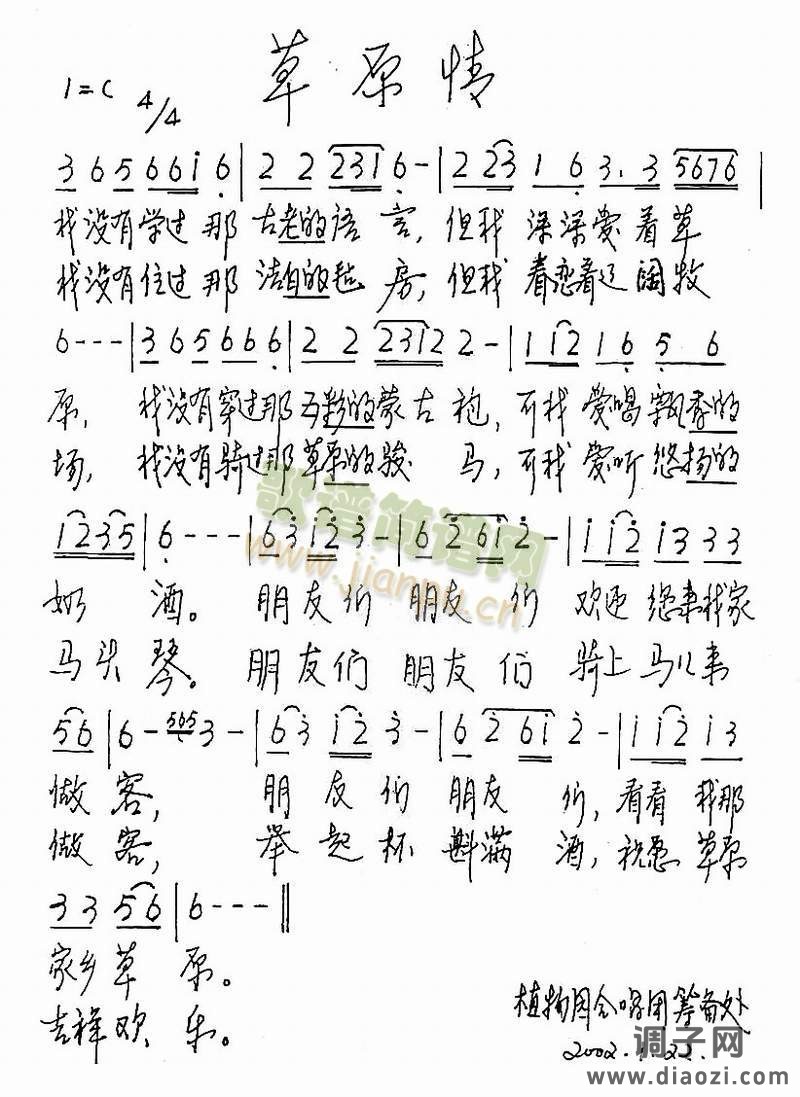 草原情
1=C 4/4
3 6 5 6 6 i 6 | 2 2 2 3 1 6 - | 2 2 3 1 6 3. 3 5 6 7 6 |
我没有学过那古老的语言，但我深深爱着草
我没有住过那洁白的毡房，但我眷恋着辽阔牧
6 - - - | 3 6 5 6 6 6 | 2 2 2 3 1 2 2 - | 1 1 2 1 6 5 6
原，我没有穿过那五彩的蒙古袍，可我爱喝飘香的
场，我没有骑过那草原的骏马，可我爱听悠扬的
1 2 3 5 | 6 - - - | 6 3 i 2 3 - | 6 2 6 i 2 - | i i 2 i 3 3 3
奶酒。朋友们朋友们欢迎您来我家
马头琴。朋友们朋友们骑上马儿来
5 6 | 6 - 5 6 5 3 - | 6 3 i 2 3 - | 6 2 6 i 2 - | i i 2 i 3
做客，朋友们朋友们，看看我那
做客，举起杯斟满酒，祝愿草原
3 3 5 6 | 6 - - - ‖
家乡草原。
吉祥欢乐。
植物园合唱团筹备处
歌谱简谱网
www.jianpu.cn
调子网
www.diaozi.com